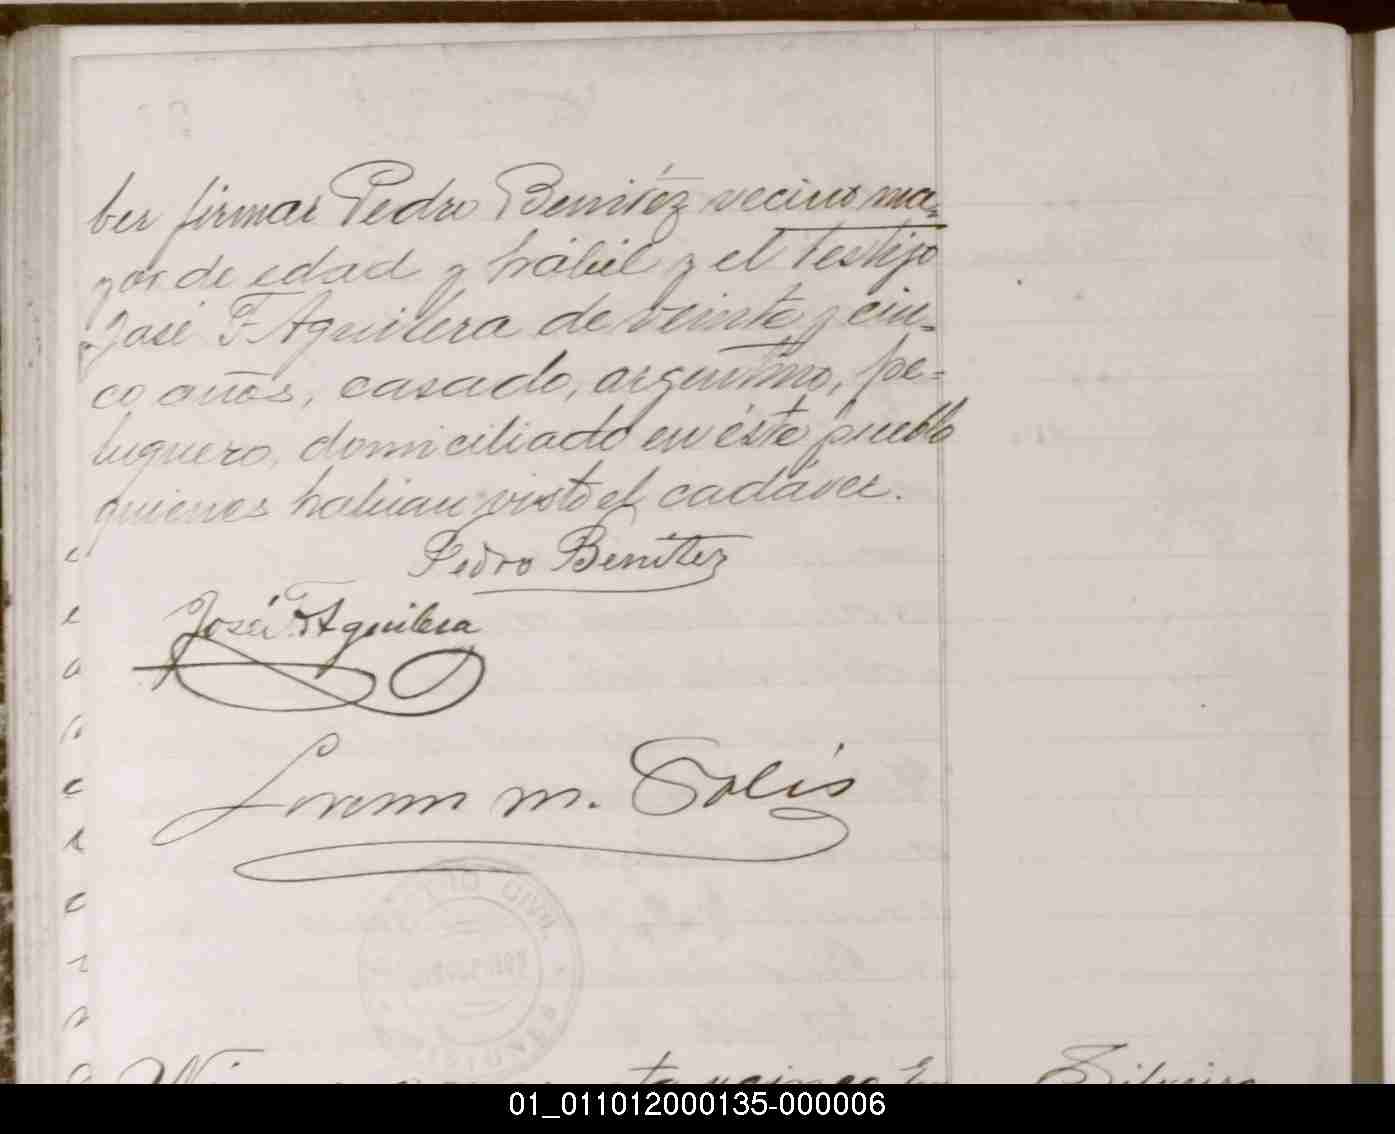 ber firmar Pedro Benítéz vecino ma=
yor de edad y hábil y el testigo
José F. Aguilera de veinte y cin=
co años, casado, argentino, pe=
luquero, domiciliado en éste pueblo
quienes habian visto el cadáver.
Pedro Benitez
José F Aguilera
m. Solís
CIVIL
MISIONES
Silveira
01_011012000135-000006